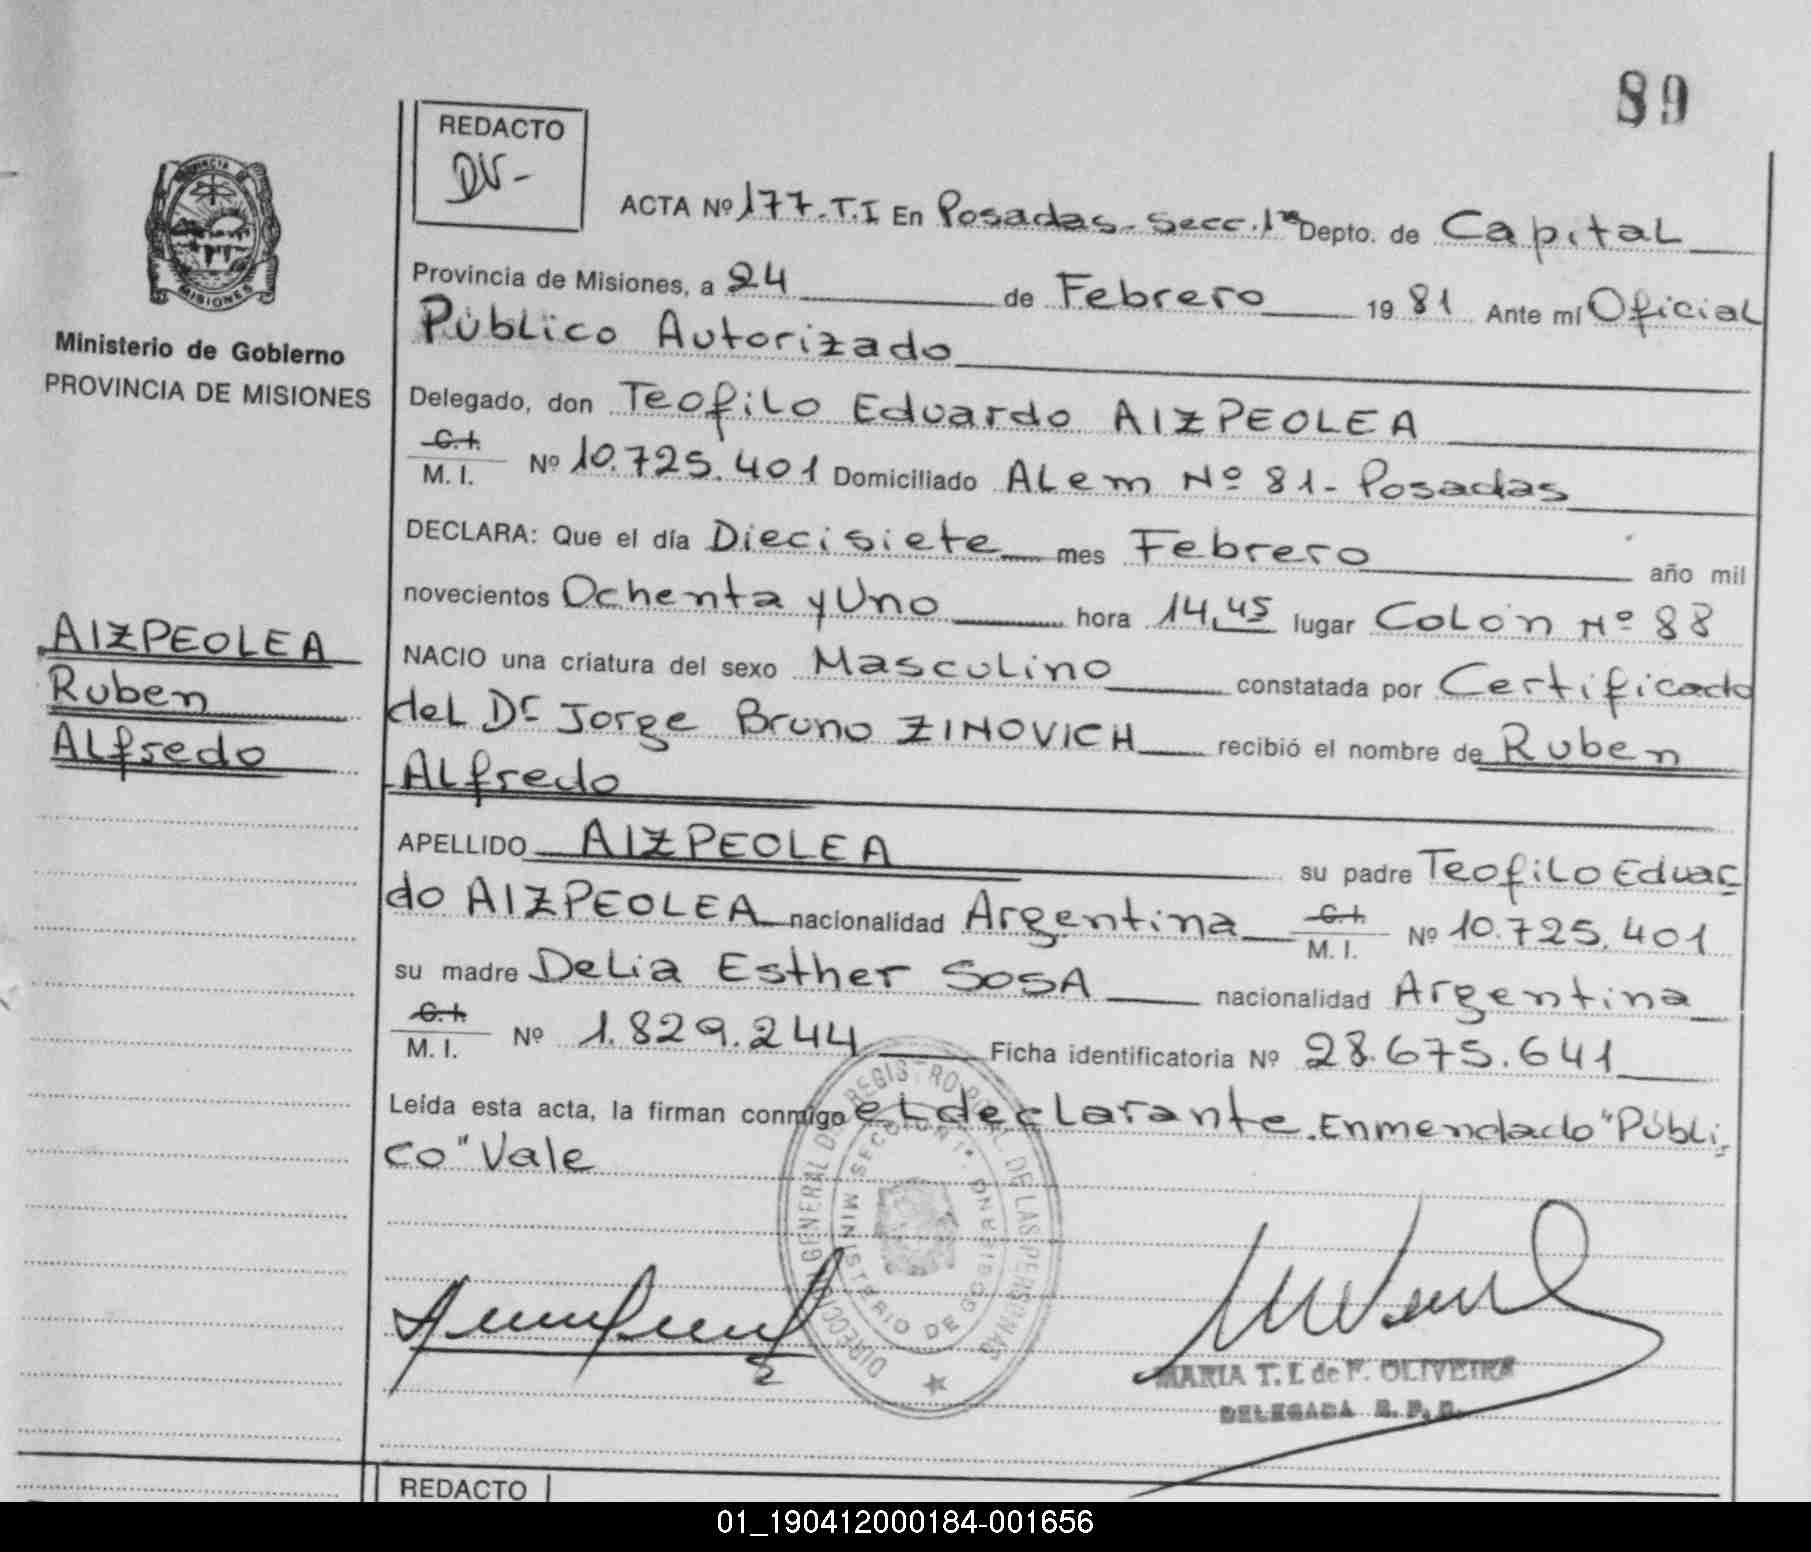 89
REDACTO
DV-
PROVINCIA DE
MISIONES
Ministerio de Gobierno
PROVINCIA DE MISIONES
AIZPEOLEA
Ruben
Alfredo
ACTA Nº 177-T.I En Posadas-Secc.1ª Depto. de Capital
Provincia de Misiones, a 24 de Febrero 1981 Ante mí Oficial
Público Autorizado
Delegado, don Teofilo Eduardo AIZPEOLEA
C.I.
M. I. Nº 10.725.401 Domiciliado Alem Nº 81-Posadas
DECLARA: Que el día Diecisiete mes Febrero año mil
novecientos Ochenta y Uno hora 14,45 lugar Colón Nº 88
NACIO una criatura del sexo Masculino constatada por Certificado
del Dr Jorge Bruno ZINOVICH recibió el nombre de Ruben
Alfredo
APELLIDO AIZPEOLEA su padre Teofilo Eduar
do AIZPEOLEA nacionalidad Argentina C.I. M. I. Nº 10.725.401
su madre Delia Esther SOSA nacionalidad Argentina
C.I.
M. I. Nº 1.829.244 Ficha identificatoria Nº 28.675.641
Leída esta acta, la firman conmigo el declarante. Enmendado "Públi-
co" Vale
DIRECCION GENERAL DEL REGISTRO PCIAL. DE LAS PERSONAS
MINISTERIO DE GOBIERNO
SECCION 1ª
MARIA T. I. de F. OLIVEIRA
DELEGADA R. P. P.
REDACTO
01_190412000184-001656